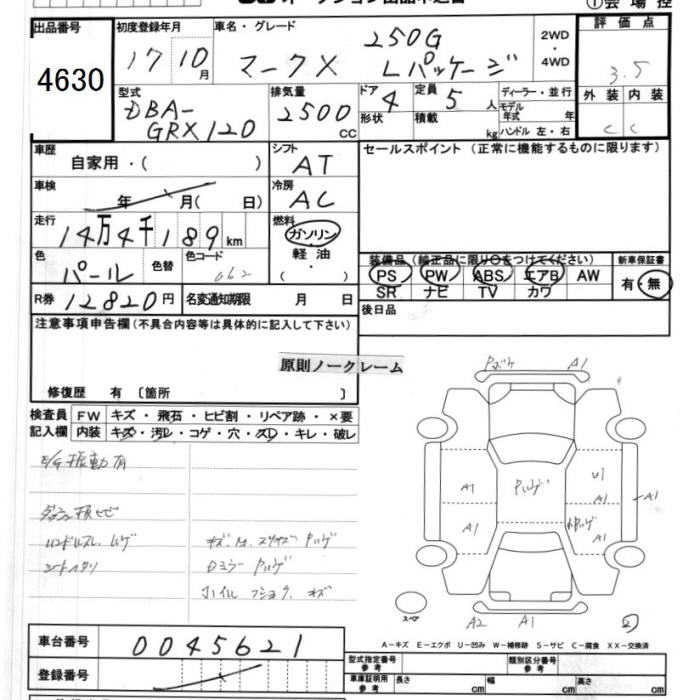 出品番号
4630
初度登録年月
17 10月
車名・グレード
250G
マークX Lパッケージ
2WD
・
4WD
評価点
3.5
外装 内装
C C
型式
DBA-
GRX120
排気量
2500
CC
ドア 4
形状
定員 5 人
積載 kg
ディーラー・並行
モデル
年式 年
ハンドル 左・右
車歴
自家用・( )
シフト
AT
セールスポイント(正常に機能するものに限ります)
車検
年 月( 日)
冷房
AC
走行
14万4千189km
燃料
ガソリン
軽油
・
( )
色
パール
色替
色コード
062
装備品(純正品に限り○をつけてください)
PS PW ABS エアB AW
SR ナビ TV カワ
新車保証書
有・無
R券 12820円
名変通知期限 月 日
後日品
注意事項申告欄(不具合内容等は具体的に記入して下さい)
原則ノークレーム
修復歴 有〔箇所 〕
検査員
記入欄
FW キズ・飛石・ヒビ割・リペア跡・×要
内装 キズ・汚レ・コゲ・穴・スレ・キレ・破レ
E/G振動有
A1
A1
A1
U1
A1
A1
A1
A2
A1
スペア
A-キズ E-エクボ U-凹み W-補修跡 S-サビ C-腐食 XX-交換済
車台番号
0045621
登録番号
型式指定番号
参考
類別区分番号
参考
車庫証明用
参考
長さ cm
幅 cm
高さ cm